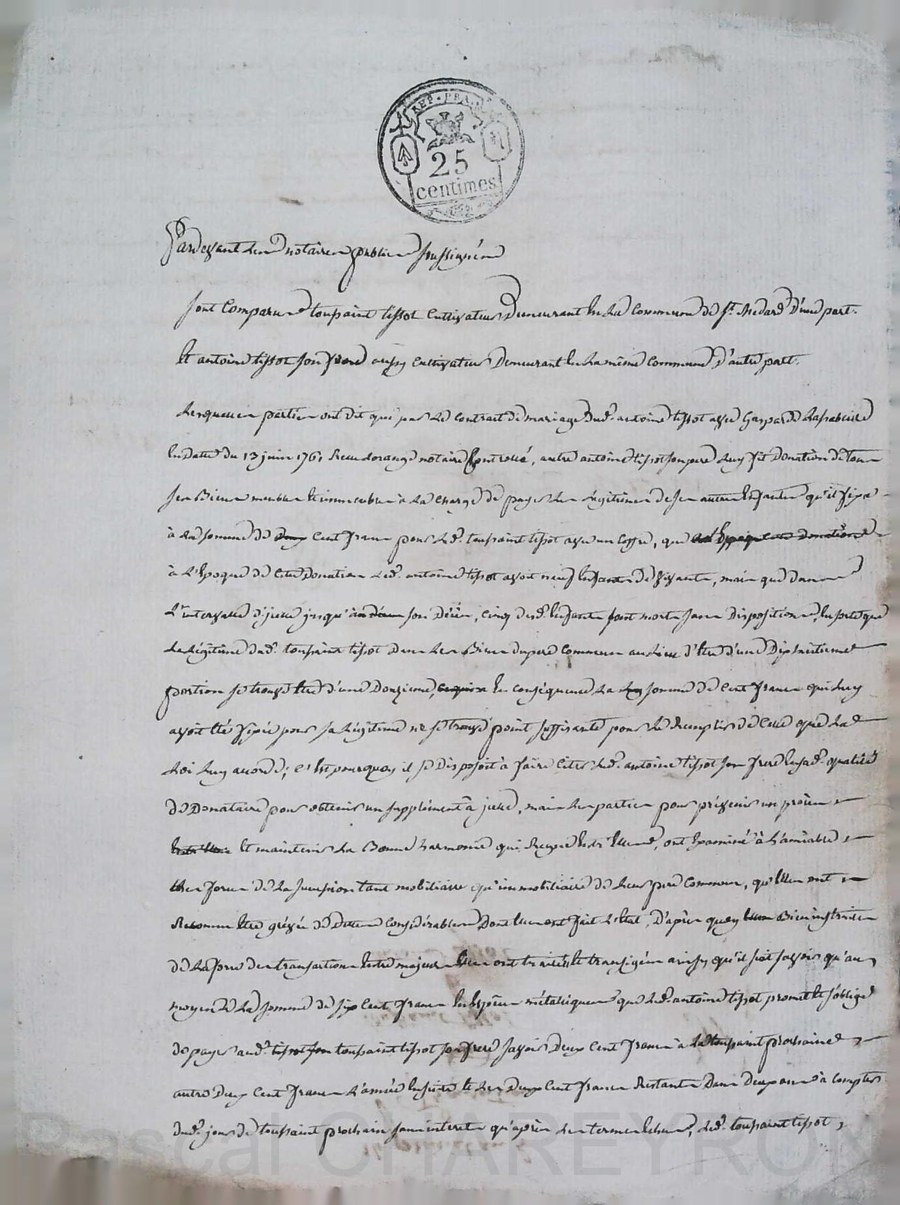 REP. FRA.
25
centimes
Pardevant les notaires publics soussignés
sont comparus toussaint tissot cultivateur Demeurant en La Commune de St. Medard d'une part.
Et antoine tissot son frere aussy cultivateur Demeurant en La même Commune d'autre part.
Lesquelles parties ont dit que par Le Contract de mariage dud. antoine tissot avec Gasparde
En Datte du 13 juin 1761 Recu notaire Controllé, autre antoine tissot son pere Luy fit Donation de tous
Ses Biens meubles et immeubles à La Charge de payer Les Légitimes de ses autres Enfants qu'il fixa
à La somme de Cent francs pour Led. toussaint tissot avec un Coffre, que
à L'Epoque de Cette Donation Led. antoine tissot avoit neuf Enfants de vivants, mais que Dans
L'intervalle d'jcelle jusqu'à son Décès, cinq desd. Enfants sont morts sans Disposition, En sorte que
La Légitime dud. toussaint tissot Dans Les Biens du pere Commun au Lieu d'être d'une Dixhuitieme
portion se trouve être d'une Douzieme, En conséquence La somme de Cent francs qui Luy
avoit été fixée pour sa Légitime ne se trouve point suffisante pour Le Remplir de Celle que La
Loi Luy accorde; c'est pourquoy il se Disposoit à faire Citer Led. antoine tissot son frere En sad. qualité
de Donataire pour obtenir un supplément à jcelle, mais Les parties pour prévenir un procès
Et maintenir La Bonne harmonie qui Regne Entre Elles, ont Examiné à L'amiable
Les forces de La succession tant mobiliaire qu'immobiliaire de Leur pere Commun, qu'Elles ont
Reconnu être grévée de Dettes Considérables Dont Elles ont fait L'Etat, D'après quoy Bien instruites
de La force des transactions Entre majeurs Elles ont traité et transigé ainsy qu'il suit sçavoir qu'au
moyen de La somme de six Cent francs En Espèces métalliques que Led. antoine tissot promet et s'oblige
de payer aud. toussaint tissot son frere sçavoir Deux Cent francs à La toussaint prochaine
autre Deux Cent francs L'année Ensuite et Les Deux Cent francs Restants Dans Deux ans à Compter
dud. jour de toussaint prochain sans interet qu'après Les termes Echus, Led. toussaint tissot,
Pascal CHAREYRON